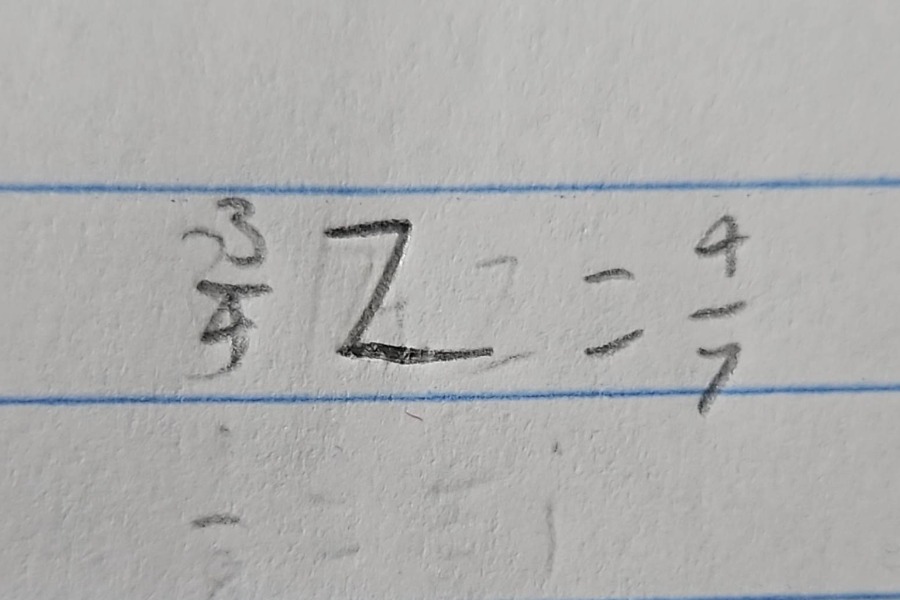 -3/4 Z = 4/7